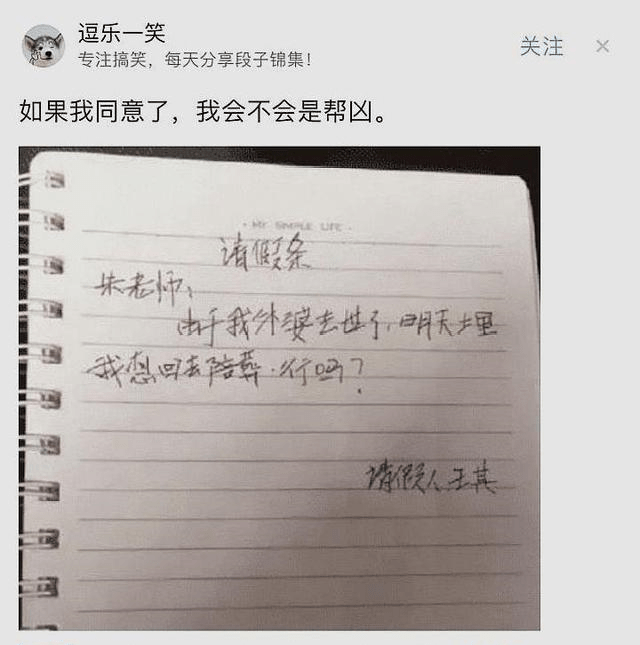 逗乐一笑
专注搞笑，每天分享段子锦集！
关注
如果我同意了，我会不会是帮凶。
· MY SIMPLE LIFE ·
请假条
朱老师，
由于我外婆去世了，明天土里
我想回去陪葬，行吗？
请假人王其